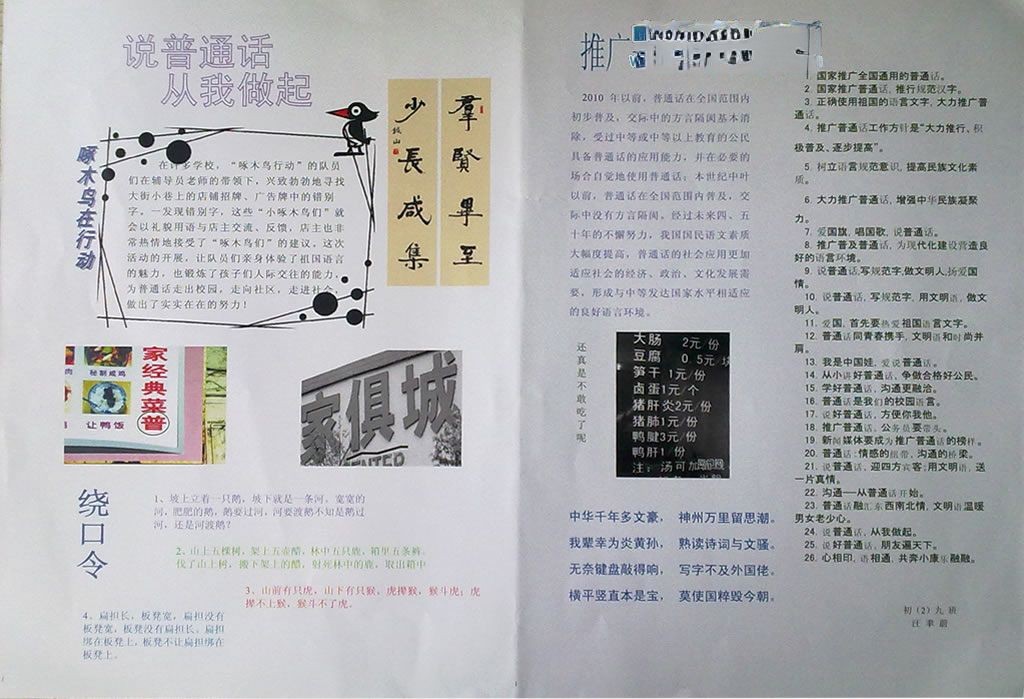 说普通话
从我做起
啄木鸟在行动
在许多学校，“啄木鸟行动”的队员
们在辅导员老师的带领下，兴致勃勃地寻找
大街小巷上的店铺招牌、广告牌中的错别
字，一发现错别字，这些“小啄木鸟们”就
会以礼貌用语与店主交流、反馈，店主也非
常热情地接受了“啄木鸟们”的建议。这次
活动的开展，让队员们亲身体验了祖国语言
的魅力，也锻炼了孩子们人际交往的能力，
为普通话走出校园，走向社区，走进社会，
做出了实实在在的努力！
羣賢畢至
少長咸集
家经典菜普
秘制咸鸡
让鸭饭
家俱城
绕口令
1、坡上立着一只鹅，坡下就是一条河。宽宽的
河，肥肥的鹅，鹅要过河，河要渡鹅不知是鹅过
河，还是河渡鹅？
2、山上五棵树，架上五壶醋，林中五只鹿，箱里五条裤。
伐了山上树，搬下架上的醋，射死林中的鹿，取出箱中
3、山前有只虎，山下有只猴。虎撵猴，猴斗虎；虎
撵不上猴，猴斗不了虎。
4、扁担长，板凳宽，扁担没有
板凳宽，板凳没有扁担长。扁担
绑在板凳上，板凳不让扁担绑在
板凳上。
推广
2010 年以前，普通话在全国范围内
初步普及，交际中的方言隔阂基本消
除，受过中等或中等以上教育的公民
具备普通话的应用能力，并在必要的
场合自觉地使用普通话；本世纪中叶
以前，普通话在全国范围内普及，交
际中没有方言隔阂。经过未来四、五
十年的不懈努力，我国国民语文素质
大幅度提高，普通话的社会应用更加
适应社会的经济、政治、文化发展需
要，形成与中等发达国家水平相适应
的良好语言环境。
还真是不敢吃了呢
大肠 2元/份
豆腐 0.5元/块
笋干 1元/份
卤蛋1元/个
猪肝炎2元/份
猪肺1元/份
鸭腱3元/份
鸭肝1/份
注：汤可加
中华千年多文豪， 神州万里留思潮。
我辈幸为炎黄孙， 熟读诗词与文骚。
无奈键盘敲得响， 写字不及外国佬。
横平竖直本是宝， 莫使国粹毁今朝。
国家推广全国通用的普通话。
2. 国家推广普通话，推行规范汉字。
3. 正确使用祖国的语言文字，大力推广普
通话。
4. 推广普通话工作方针是“大力推行、积
极普及、逐步提高”。
5. 树立语言规范意识，提高民族文化素
质。
6. 大力推广普通话，增强中华民族凝聚
力。
7. 爱国旗，唱国歌，说普通话。
8. 推广普及普通话，为现代化建设营造良
好的语言环境。
9. 说普通话,写规范字,做文明人,扬爱国
情。
10. 说普通话，写规范字，用文明语，做文
明人。
11. 爱国，首先要热爱祖国语言文字。
12. 普通话同青春携手，文明语和时尚并
肩。
13. 我是中国娃，爱说普通话。
14. 从小讲好普通话，争做合格好公民。
15. 学好普通话，沟通更融洽。
16. 普通话是我们的校园语言。
17. 说好普通话，方便你我他。
18. 推广普通话，公务员要带头。
19. 新闻媒体要成为推广普通话的榜样。
20. 普通话：情感的纽带，沟通的桥梁。
21. 说普通话，迎四方宾客；用文明语，送
一片真情。
22. 沟通——从普通话开始。
23. 普通话融汇东西南北情，文明语温暖
男女老少心。
24. 说普通话，从我做起。
25. 说好普通话，朋友遍天下。
26. 心相印，语相通，共奔小康乐融融。
初（2）九班